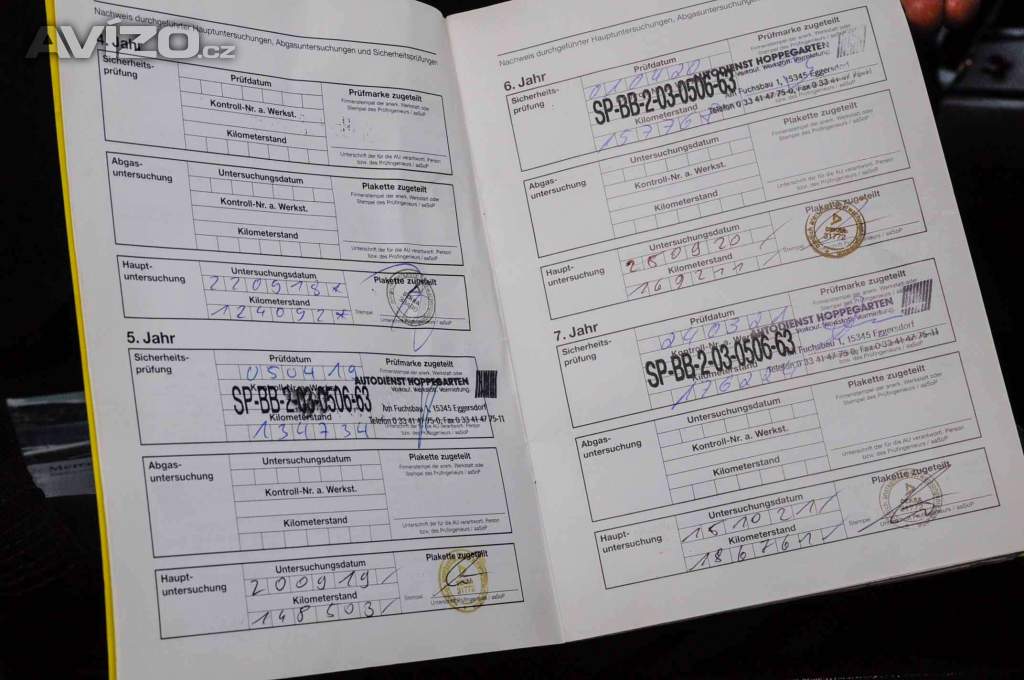 AVÍZO.cz
Nachweis durchgeführter Hauptuntersuchungen, Abgasuntersuchungen und Sicherheitsprüfungen
4. Jahr
Sicherheits-
prüfung
Prüfdatum
Kontroll-Nr. a. Werkst.
Kilometerstand
Prüfmarke zugeteilt
Firmenstempel der anerk. Werkstatt oder
Stempel des Prüfingenieurs / aaSoP
Unterschrift der für die AU verantwort. Person
bzw. des Prüfingenieurs / aaSoP
Abgas-
untersuchung
Untersuchungsdatum
Kontroll-Nr. a. Werkst.
Kilometerstand
Plakette zugeteilt
Firmenstempel der anerk. Werkstatt oder
Stempel des Prüfingenieurs / aaSoP
Unterschrift der für die AU verantwort. Person
bzw. des Prüfingenieurs / aaSoP
Haupt-
untersuchung
Untersuchungsdatum
220918*
Kilometerstand
124092*
Plakette zugeteilt
Stempel
Unterschrift des Prüfingenieurs / aaSoP
5. Jahr
Sicherheits-
prüfung
Prüfdatum
050419
SP-BB-2-03-0506-63
Kilometerstand
134734
Prüfmarke zugeteilt
AUTODIENST HOPPEGARTEN
Verkauf, Werkstatt, Vermietung
Am Fuchsbau 1, 15345 Eggersdorf
Telefon 0 33 41 47 75-0, Fax 0 33 41 47 75-11
Abgas-
untersuchung
Untersuchungsdatum
Kontroll-Nr. a. Werkst.
Kilometerstand
Plakette zugeteilt
Firmenstempel der anerk. Werkstatt oder
Stempel des Prüfingenieurs / aaSoP
Unterschrift der für die AU verantwort. Person
bzw. des Prüfingenieurs / aaSoP
Haupt-
untersuchung
Untersuchungsdatum
200919/
Kilometerstand
148503/
Plakette zugeteilt
Stempel
31772
Nachweis durchgeführter Hauptuntersuchungen, Abgasuntersuchungen
6. Jahr
Sicherheits-
prüfung
Prüfdatum
010420
SP-BB-2-03-0506-63
Kilometerstand
Prüfmarke zugeteilt
AUTODIENST HOPPEGARTEN
Verkauf, Werkstatt, Vermietung
Am Fuchsbau 1, 15345 Eggersdorf
Telefon 0 33 41 47 75-0, Fax 0 33 41 47 75-11
Abgas-
untersuchung
Untersuchungsdatum
Kontroll-Nr. a. Werkst.
Kilometerstand
Plakette zugeteilt
Firmenstempel der anerk. Werkstatt oder
Stempel des Prüfingenieurs / aaSoP
Unterschrift der für die AU verantwort. Person
bzw. des Prüfingenieurs / aaSoP
Haupt-
untersuchung
Untersuchungsdatum
250920/
Kilometerstand
169211/
Plakette zugeteilt
Stempel
DEKRA
31772
7. Jahr
Sicherheits-
prüfung
Prüfdatum
240321
SP-BB-2-03-0506-63
Kilometerstand
Prüfmarke zugeteilt
AUTODIENST HOPPEGARTEN
Verkauf, Werkstatt, Vermietung
Fuchsbau 1, 15345 Eggersdorf
Telefon 0 33 41 47 75-0, Fax 0 33 41 47 75-11
Abgas-
untersuchung
Untersuchungsdatum
Kontroll-Nr. a. Werkst.
Kilometerstand
Plakette zugeteilt
Firmenstempel der anerk. Werkstatt oder
Stempel des Prüfingenieurs / aaSoP
Unterschrift der für die AU verantwort. Person
bzw. des Prüfingenieurs / aaSoP
Haupt-
untersuchung
Untersuchungsdatum
151021/
Kilometerstand
186761/
Plakette zugeteilt
Stempel
DEKRA